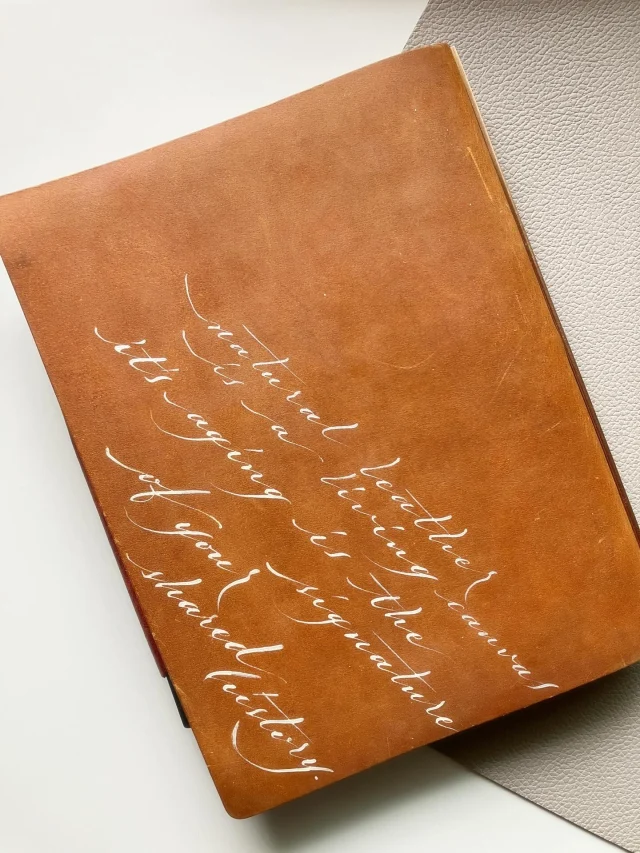 natural leather
is a living canvas
it's aging is the
signature
of your
shared
history.